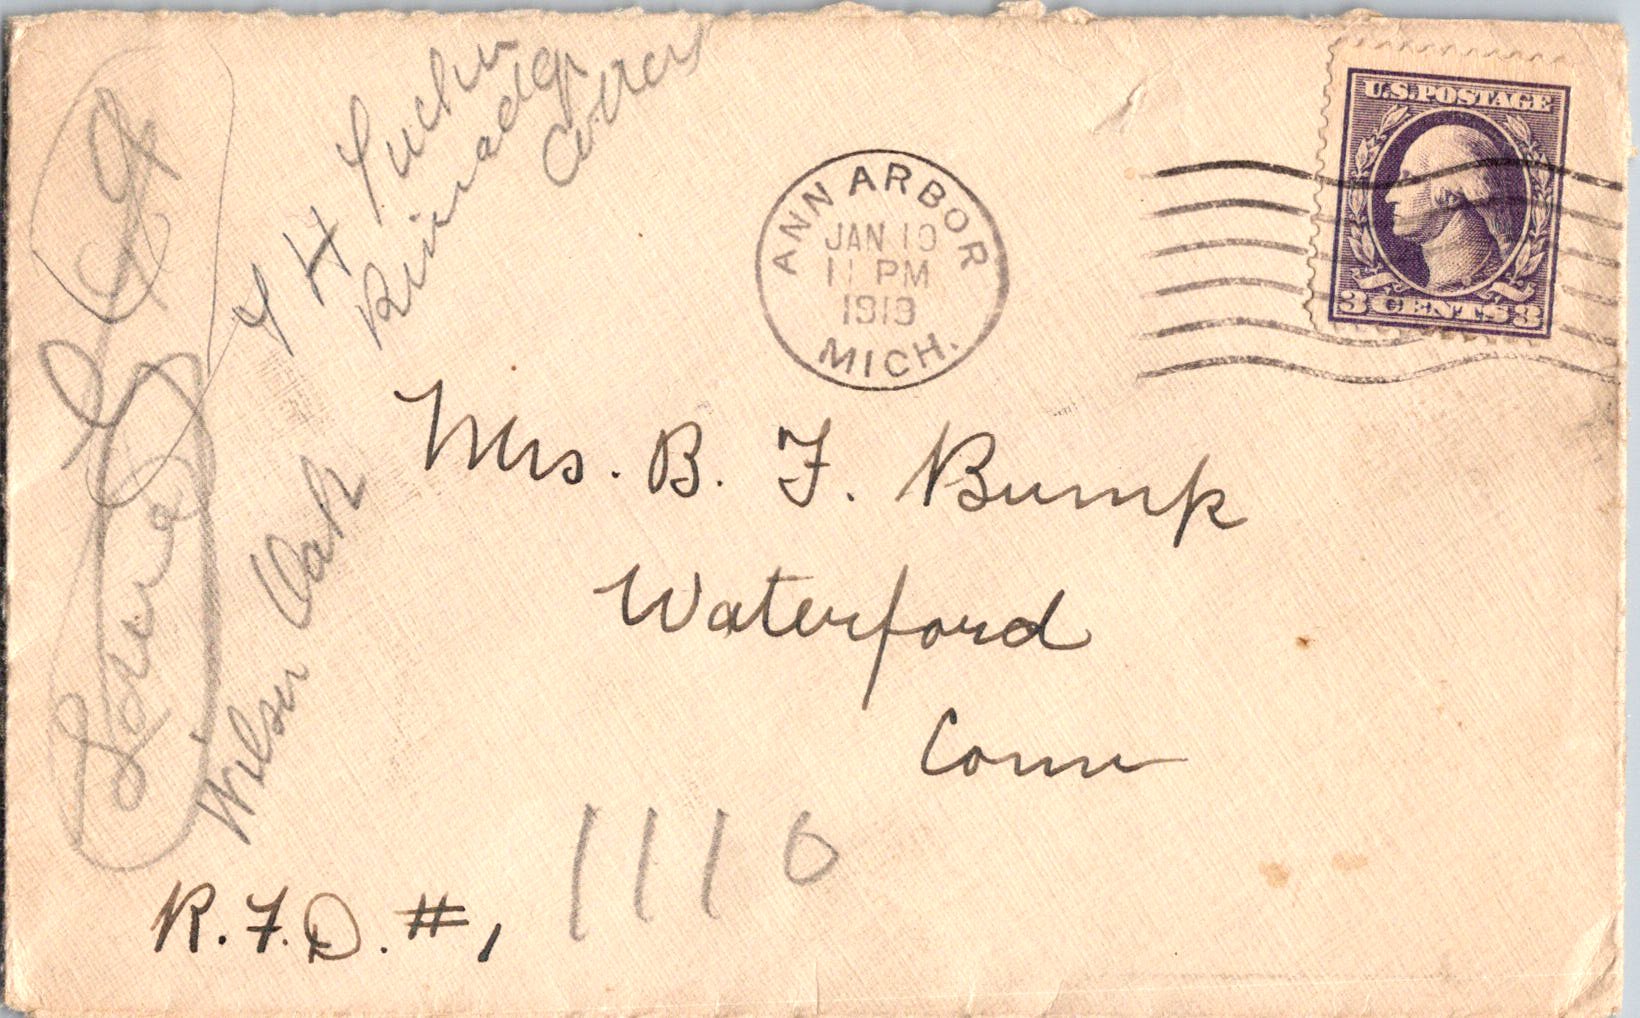 U.S. POSTAGE
3 CENTS 3
ANN ARBOR
JAN 10
11 PM
1919
MICH.
Mrs. B. F. Bump
Waterford
Conn
R.F.D. #1
1110
Wilson Oak